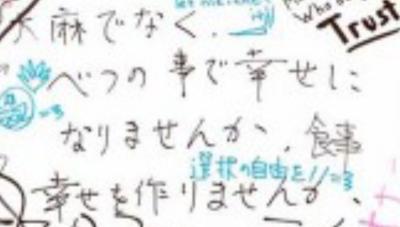 大麻でなく、
Trust
べつの事で幸せに
なりませんか、食事
選択の自由を//=3
幸せを作りませんか、